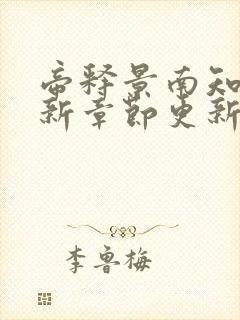 帝释景南知
新章节更新
李鲁梅